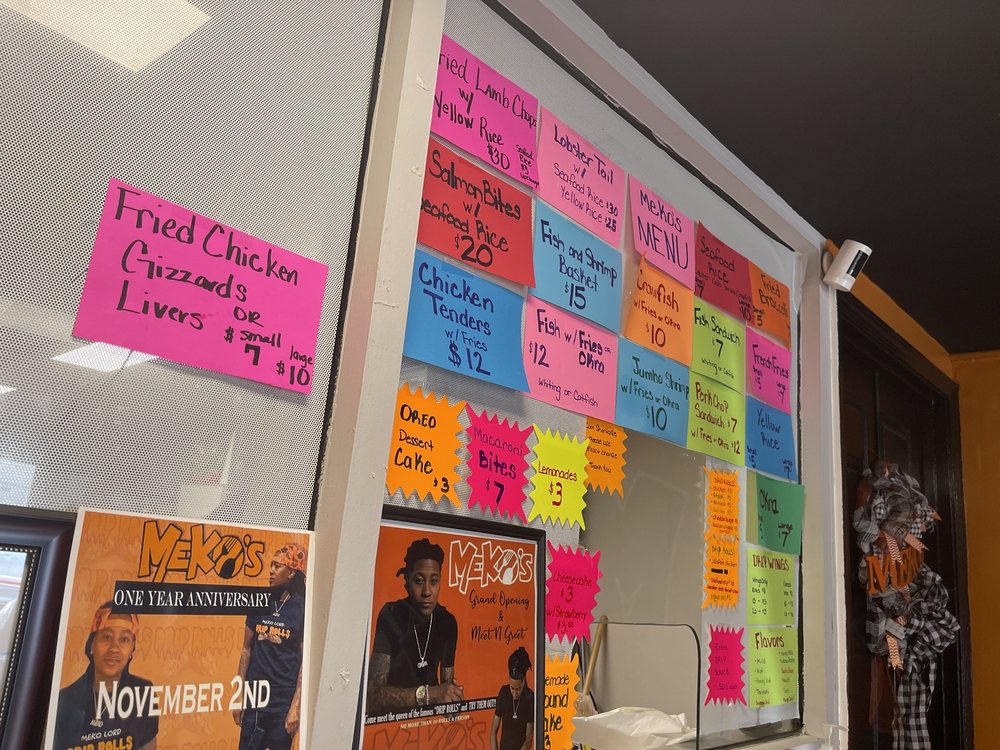 Fried Chicken
Gizzards
OR
Livers
$ small
7
large
$10
ried Lamb Chops
w/
Yellow Rice
$30
Lobster Tail
w/
Seafood Rice $30
Yellow Rice $25
Meko's
MENU
Seafood
Rice
Fried
Broccoli
Salmon Bites
w/
Seafood Rice
$20
Fish and Shrimp
Basket
$15
Crawfish
w/Fries or Okra
$10
Fish Sandwich
$7
Whiting or Catfish
French Fries
Chicken
Tenders
w/Fries
$12
Fish w/Fries or
$12 Okra
Whiting or Catfish
Jumbo Shrimp
w/Fries or Okra
$10
Pork Chop
Sandwich $7
w/Fries or Okra $12
Yellow
Rice
OREO
Dessert
Cake
$3
Macaroni
Bites
$7
Lemonades
$3
Thank You
Okra
Large
$7
Cheesecake
$3
w/Strawberry
$3.50
DRIP WINGS
Flavors
Extra
DRIP
Sauce
.50¢
MEKO'S
ONE YEAR ANNIVERSARY
MEKO LORD
DRIP ROLLS
NOVEMBER 2ND
MEKO LORD
DRIP ROLLS
MEKO'S
Grand Opening
&
Meet N Greet
Come meet the queen of the famous "DRIP ROLLS" and TRY THEM OUT!
NO MORE THAN 10 ROLLS A PERSON